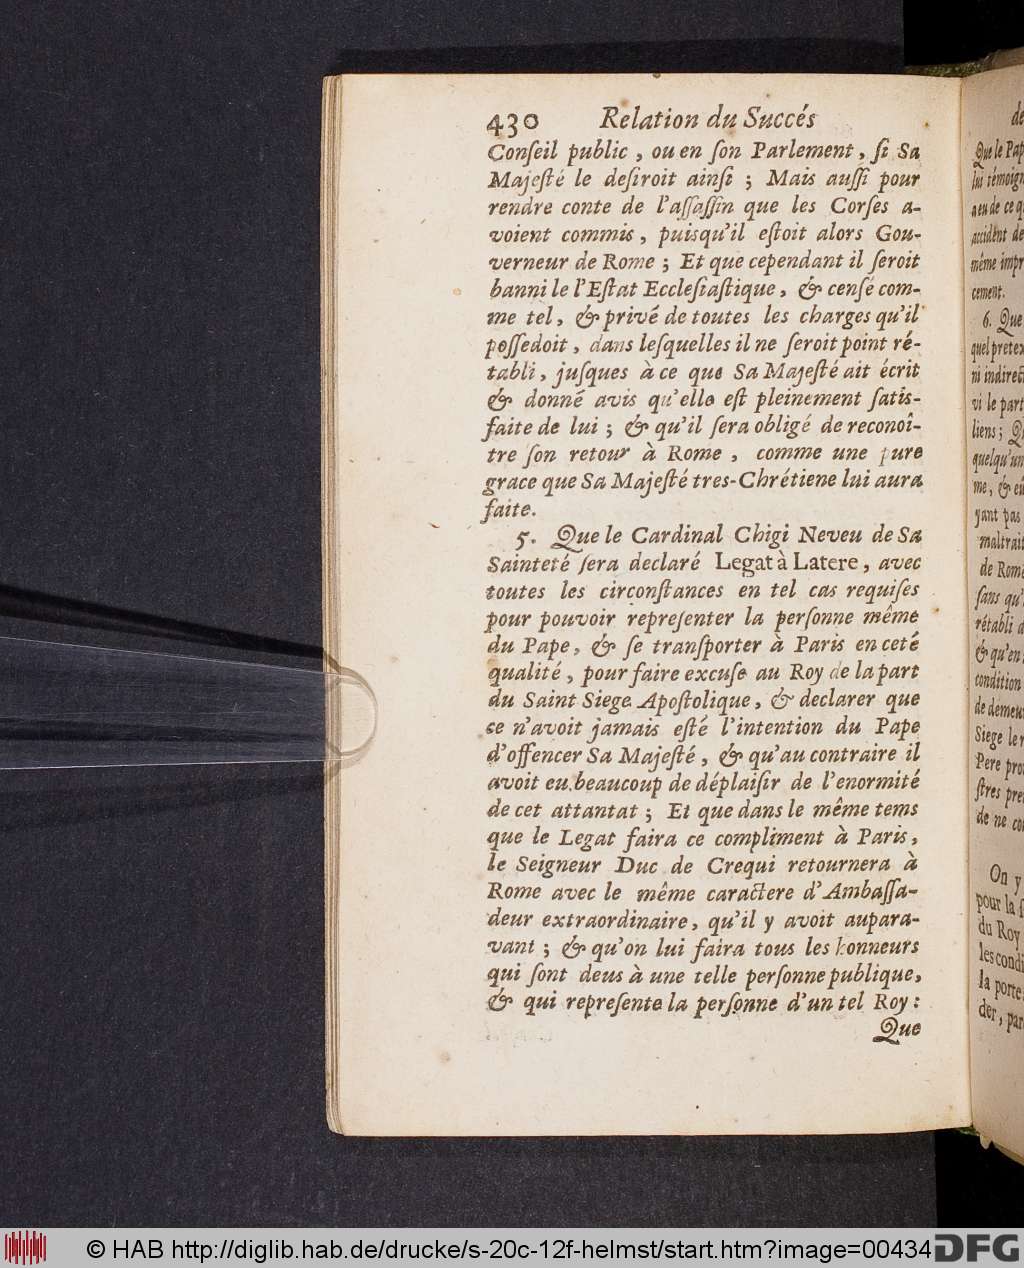 430 Relation du Succés
Conſeil public, ou en ſon Parlement, ſi Sa
Majeſté le deſiroit ainſi ; Mais auſſi pour
rendre conte de l'aſſaſſin que les Corſes a-
voient commis, puisqu'il eſtoit alors Gou-
verneur de Rome ; Et que cependant il ſeroit
banni le l'Eſtat Eccleſiaſtique, & cenſé com-
me tel, & privé de toutes les charges qu'il
poſſedoit, dans leſquelles il ne ſeroit point ré-
tabli, juſques à ce que Sa Majeſté ait écrit
& donné avis qu'elle eſt pleinement ſatis-
faite de lui ; & qu'il ſera obligé de reconoî-
tre ſon retour à Rome, comme une pure
grace que Sa Majeſté tres-Chrétiene lui aura
faite.
5. Que le Cardinal Chigi Neveu de Sa
Sainteté ſera declaré Legat à Latere, avec
toutes les circonſtances en tel cas requiſes
pour pouvoir repreſenter la perſonne même
du Pape, & ſe tranſporter à Paris en ceté
qualité, pour faire excuſe au Roy de la part
du Saint Siege Apoſtolique, & declarer que
ce n'avoit jamais eſté l'intention du Pape
d'offencer Sa Majeſté, & qu'au contraire il
avoit eu beaucoup de déplaiſir de l'enormité
de cet attantat ; Et que dans le même tems
que le Legat faira ce compliment à Paris,
le Seigneur Duc de Crequi retournera à
Rome avec le même caractere d'Ambaſſa-
deur extraordinaire, qu'il y avoit aupara-
vant ; & qu'on lui faira tous les honneurs
qui ſont deus à une telle perſonne publique,
& qui repreſente la perſonne d'un tel Roy :
Que
de
Que le Pap
lui témoign
a eu de ce q
accident de
même impr
cement.
6. Que
quel pretex
ni indirect
vi le part
liens ; Q
quelqu'un
me, & eû
yant pas
maltrait
de Rome
ſans qu'
rétabli d
& qu'en
condition
de demeur
Siege le r
Pere pro
ſtres pre
de ne co
On y
pour la ſ
du Roy
les condi
la porte
der, par
© HAB http://diglib.hab.de/drucke/s-20c-12f-helmst/start.htm?image=00434
DFG